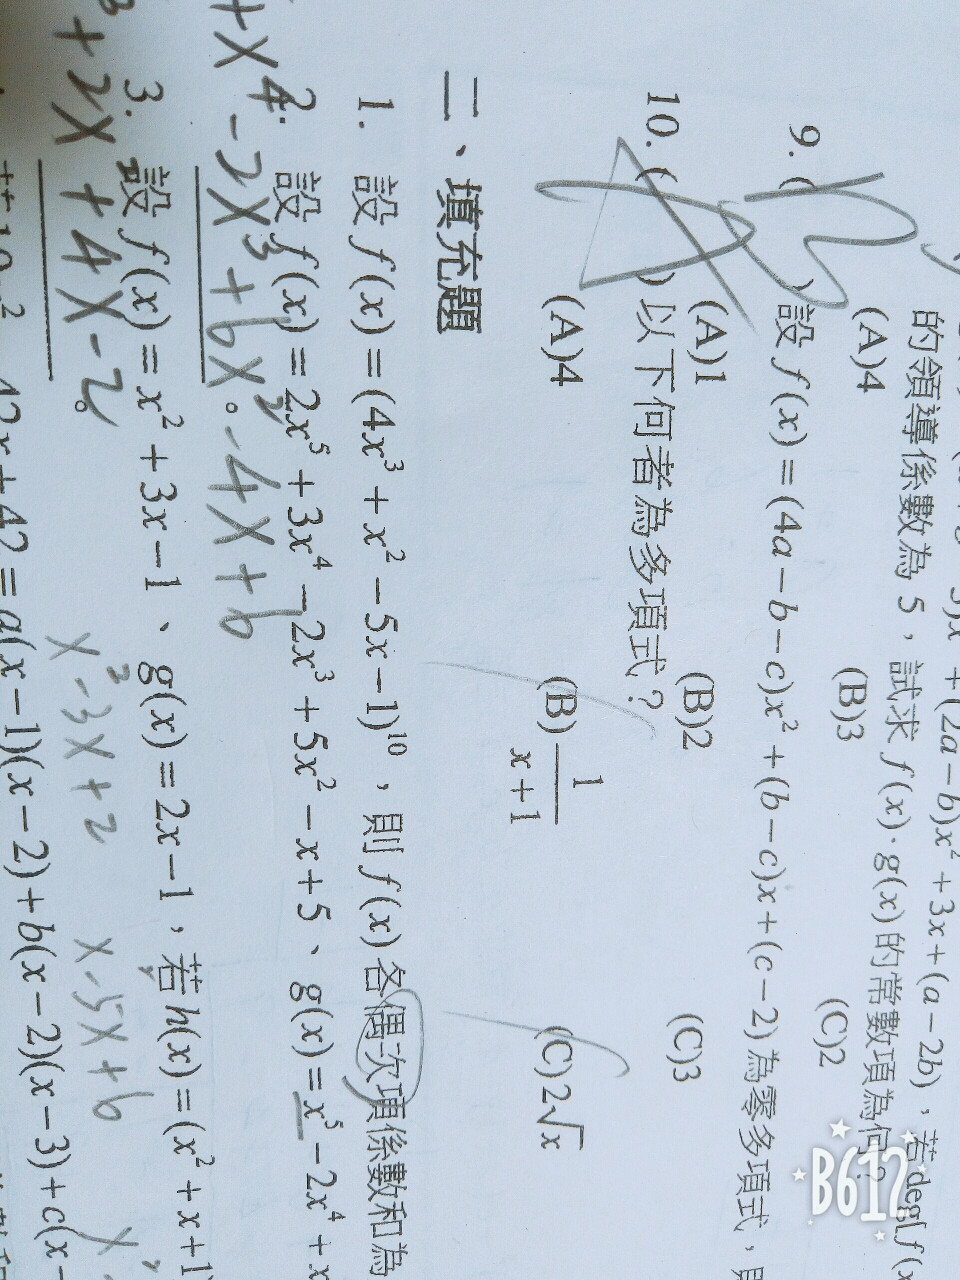 +(2a-b)x²+3x+(a-2b)，若deg[f(x)
的領導係數為 5，試求 f(x)·g(x)的常數項為何?
(A)4 (B)3 (C)2
9.( ) 設 f(x)=(4a-b-c)x²+(b-c)x+(c-2)為零多項式，
(A)1 (B)2 (C)3
10.( ) 以下何者為多項式？
(A)4 (B) 1/(x+1) (C)2√x
二、填充題
1. 設 f(x)=(4x³+x²-5x-1)¹⁰，則 f(x)各偶次項係數和為
2. 設 f(x)=2x⁵+3x⁴-2x³+5x²-x+5、g(x)=x⁵-2x⁴+x
+x⁴-2x³+6x²-4x+6
。
3. 設 f(x)=x²+3x-1、g(x)=2x-1，若h(x)=(x²+x+1)
³+2x +4x-2
。
x²-3x+2 x-5x+6
12x+42=a(x-1)(x-2)+b(x-2)(x-3)+c(x-
B612